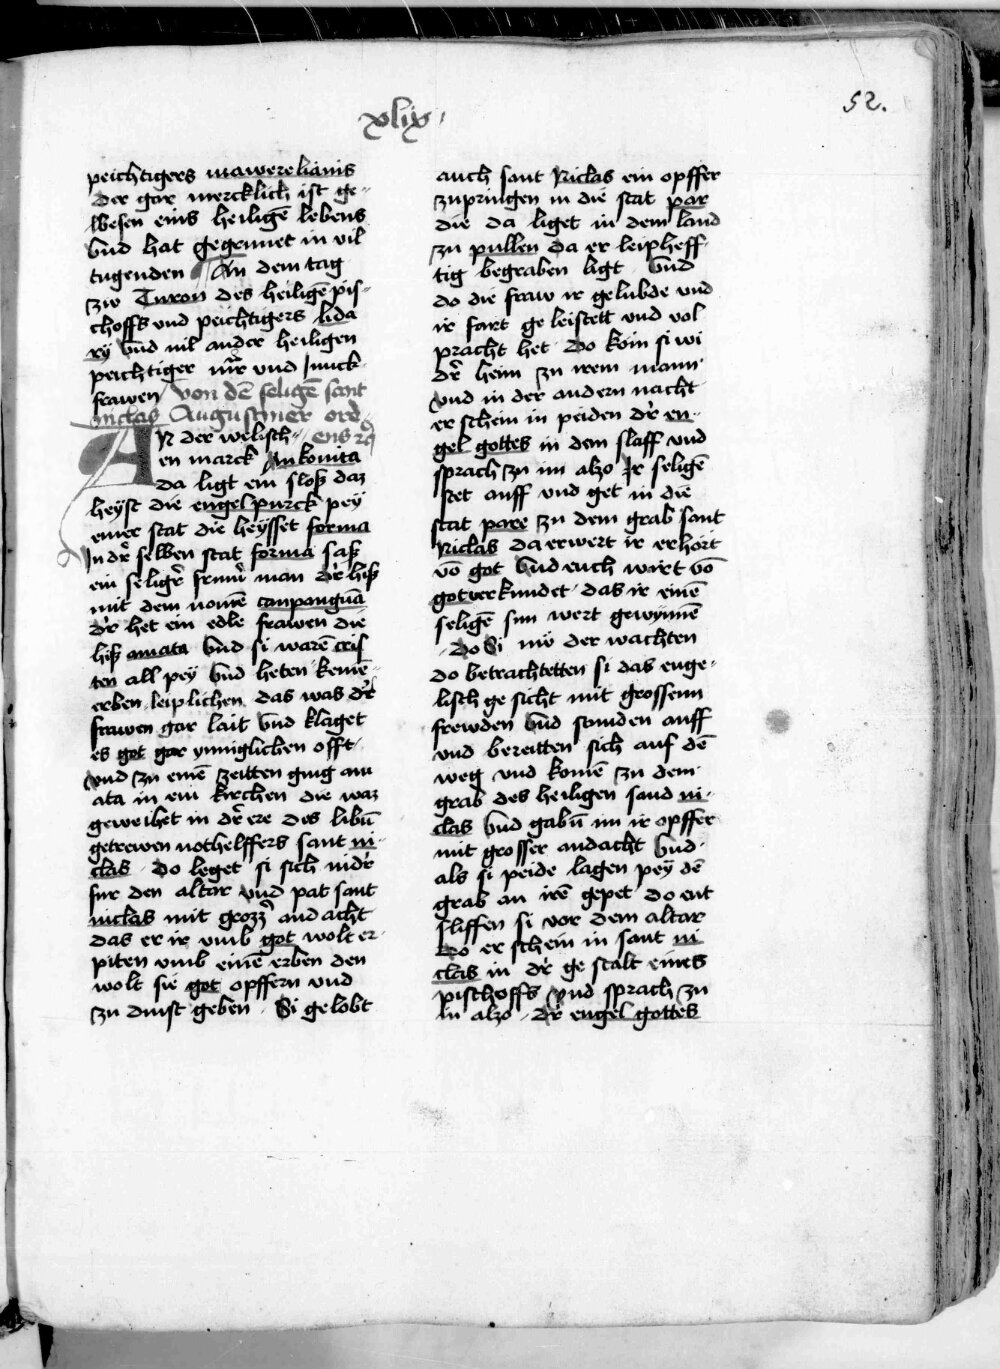 52.
xlix
peichtigers mawerelianis
der gar mercklich ist ge-
wesen eins heiligē lebens
vnd hat gegrunet in vil
tugenden An dem tag
zw Turon des heiligē pis-
choffs vnd peichtigers lida
ry vnd vil ander heiligen
peichtiger mr̄ vnd Junck
frawen von dē seligē sant
niclas Augustiner ord
ens rc̄
AN der welisch-
en marck Ankonita
da ligt ein slosz daz
heyst die engelpurck pey
einer stat die heysset forma
In dr̄ selben stat forma sasz
ein seligr̄ frum̄ man dr̄ hisz
mit dem nomē canpanguā
dr̄ het ein edle frawen die
hisz amata vnd si warē cris
ten all pey vnd heten kemē-
erben leiplichen das was dr̄
frawen gar lait vnd klaget
es got gar ynniglichen offt
vnd zu einē zeitten ging am
ata in ein kirchen die waz
geweihet in dr̄ ere des libn̄
getrewen nothelffers sant ni-
clas do leget si sich nidr̄
fur den altar vnd pat sant
niclas mit grozz̄ andacht
das er ir vmb got wolt er-
piten vmb einē erben den
wolt sie got opffern vnd
zu dinst geben Si gelobt
auch sant Niclas ein opffer
zupringen in die stat par
die da liget in dem land
zu pullen da er leipheff
tig begraben ligt vnd
do die fraw ir gelubde vnd
ir fart geleistett vnd vol
pracht het do kom si wi
dr̄ heim zu irem mann
vnd in der andern nacht
erschein in peiden dr̄ en-
gel gottes in dem slaff vnd
sprach zu im alzo Ir seligē
stet auff vnd get in die
stat pare zu dem grab sant
Niclas da erwert ir erhort
vō got vnd euch wirt vō
got verkundet das ir einē
seligē sun wert gewynnē
do Si nw der wachten
do betrachtetten si das enge-
lisch gesicht mit grossenn
frewden vnd stunden auff
vnd bereitten sich auf dē
weg vnd komē zu dem
grab des heiligen sand ni-
clas vnd gabn̄ im ir opffer
mit grosser andacht vnd
als si peide lagen pey dē
grab an irē gepet do ent
sliffen si vor dem altar
do erschein in sant ni
clas in dr̄ gestalt eines
pischoffs vnd sprach zu
in alzo dr̄ engel gottes